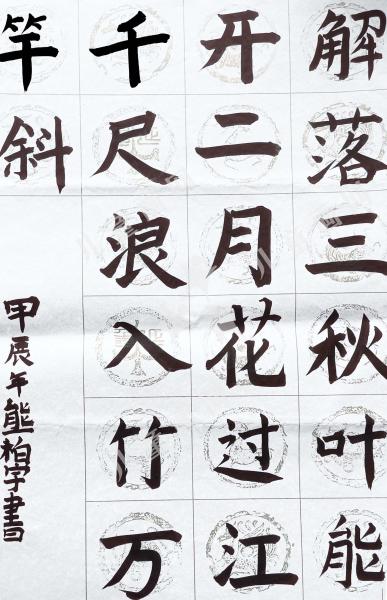 解落三秋叶能
开二月花过江
千尺浪入竹万
竿斜
甲辰年熊柏宇書